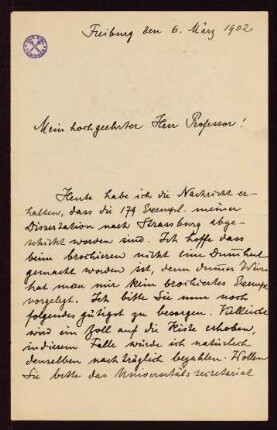 Freiburg den 6. März 1902
Mein hochgeehrter Herr Professor!
Heute habe ich die Nachricht er-
halten, dass die 179 Exempl. meiner
Dissertation nach Strassburg abge-
schickt worden sind. Ich hoffe dass
beim brochieren nicht eine Dummheit
gemacht worden ist, denn dummer Weise
hat man mir kein brochiertes Exempl.
vorgelegt. Ich bitte Sie nun noch
folgendes gütigst zu besorgen. Vielleicht
wird ein Zoll auf die Kiste erhoben,
in diesem Falle würde ich natürlich
denselben nachträglich bezahlen. Wollen
Sie bitte das Universitätssecretariat